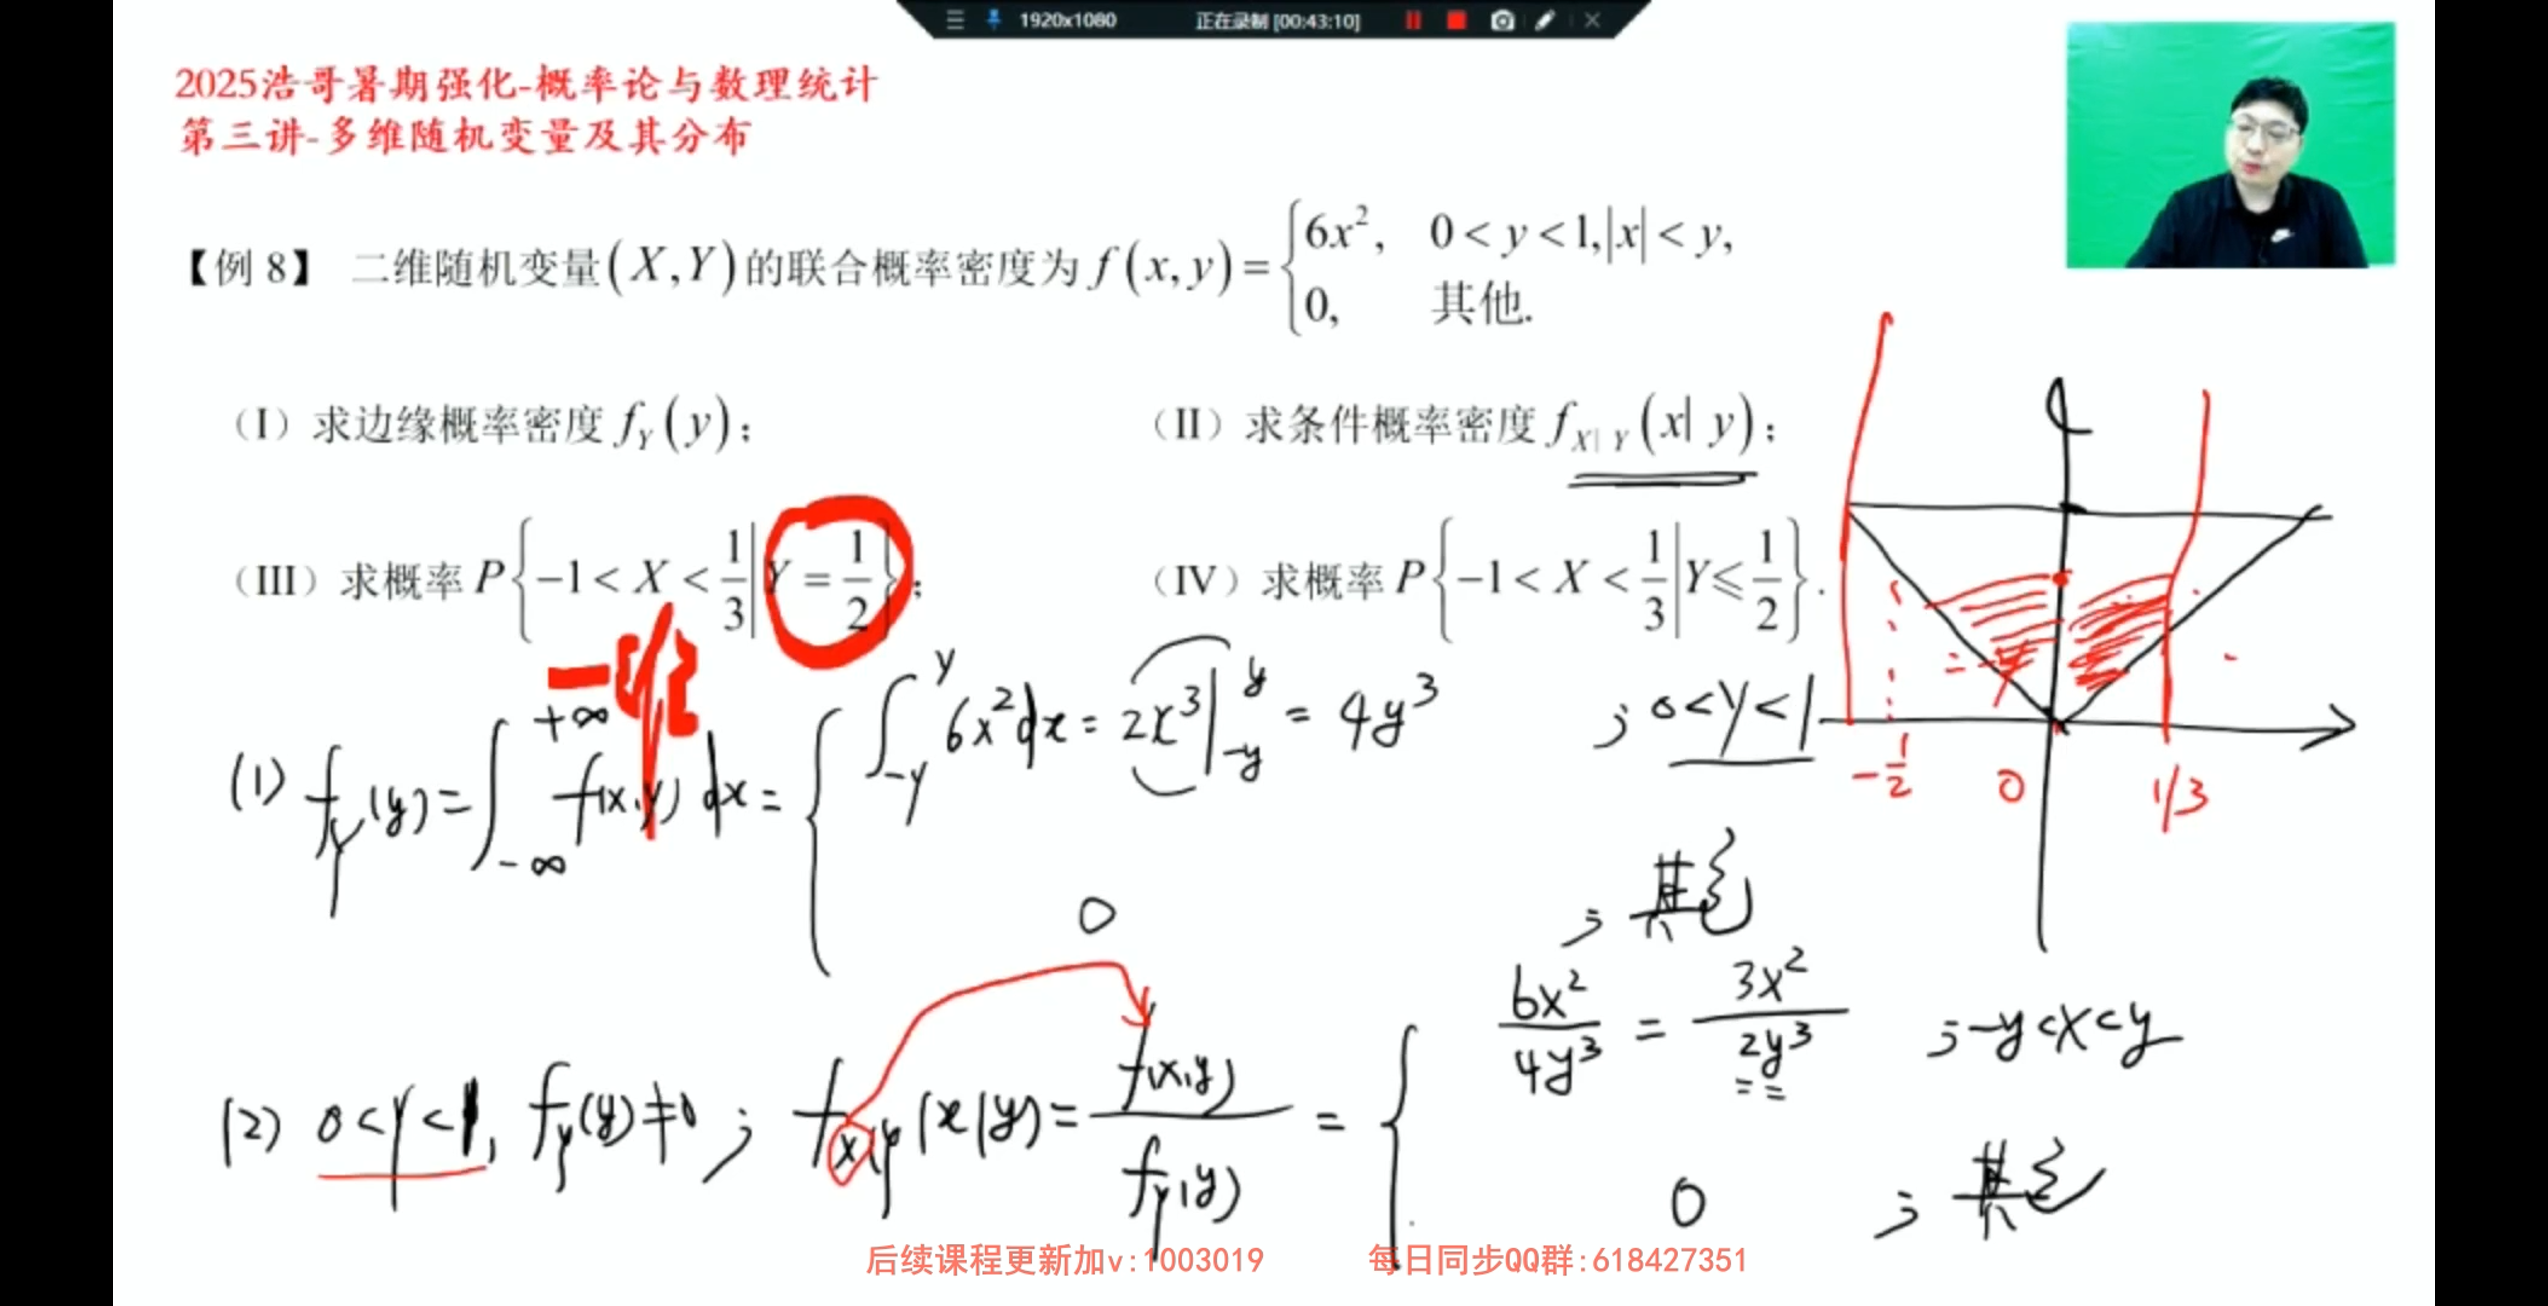 1920x1080 正在录制 [00:43:10]
2025浩哥暑期强化-概率论与数理统计
第三讲-多维随机变量及其分布
【例 8】 二维随机变量(X,Y)的联合概率密度为 f(x,y)={6x², 0<y<1,|x|<y,
0, 其他.
(I) 求边缘概率密度 f_Y(y);
(II) 求条件概率密度 f_{X|Y}(x|y);
(III) 求概率 P{-1<X<1/3|Y=1/2};
(IV) 求概率 P{-1<X<1/3|Y≤1/2}.
(1) f_Y(y)=∫_{-∞}^{+∞} f(x,y)dx={∫_{-y}^{y} 6x²dx=2x³|_{-y}^{y}=4y³ ; 0<y<1
0 ; 其它
-1/2 0 1/3
(2) 0<y<1, f_Y(y)≠0 ; f_{X|Y}(x|y)=f(x,y)/f_Y(y)={6x²/4y³=3x²/2y³ ; -y<x<y
0 ; 其它
后续课程更新加v:1003019 每日同步QQ群:618427351